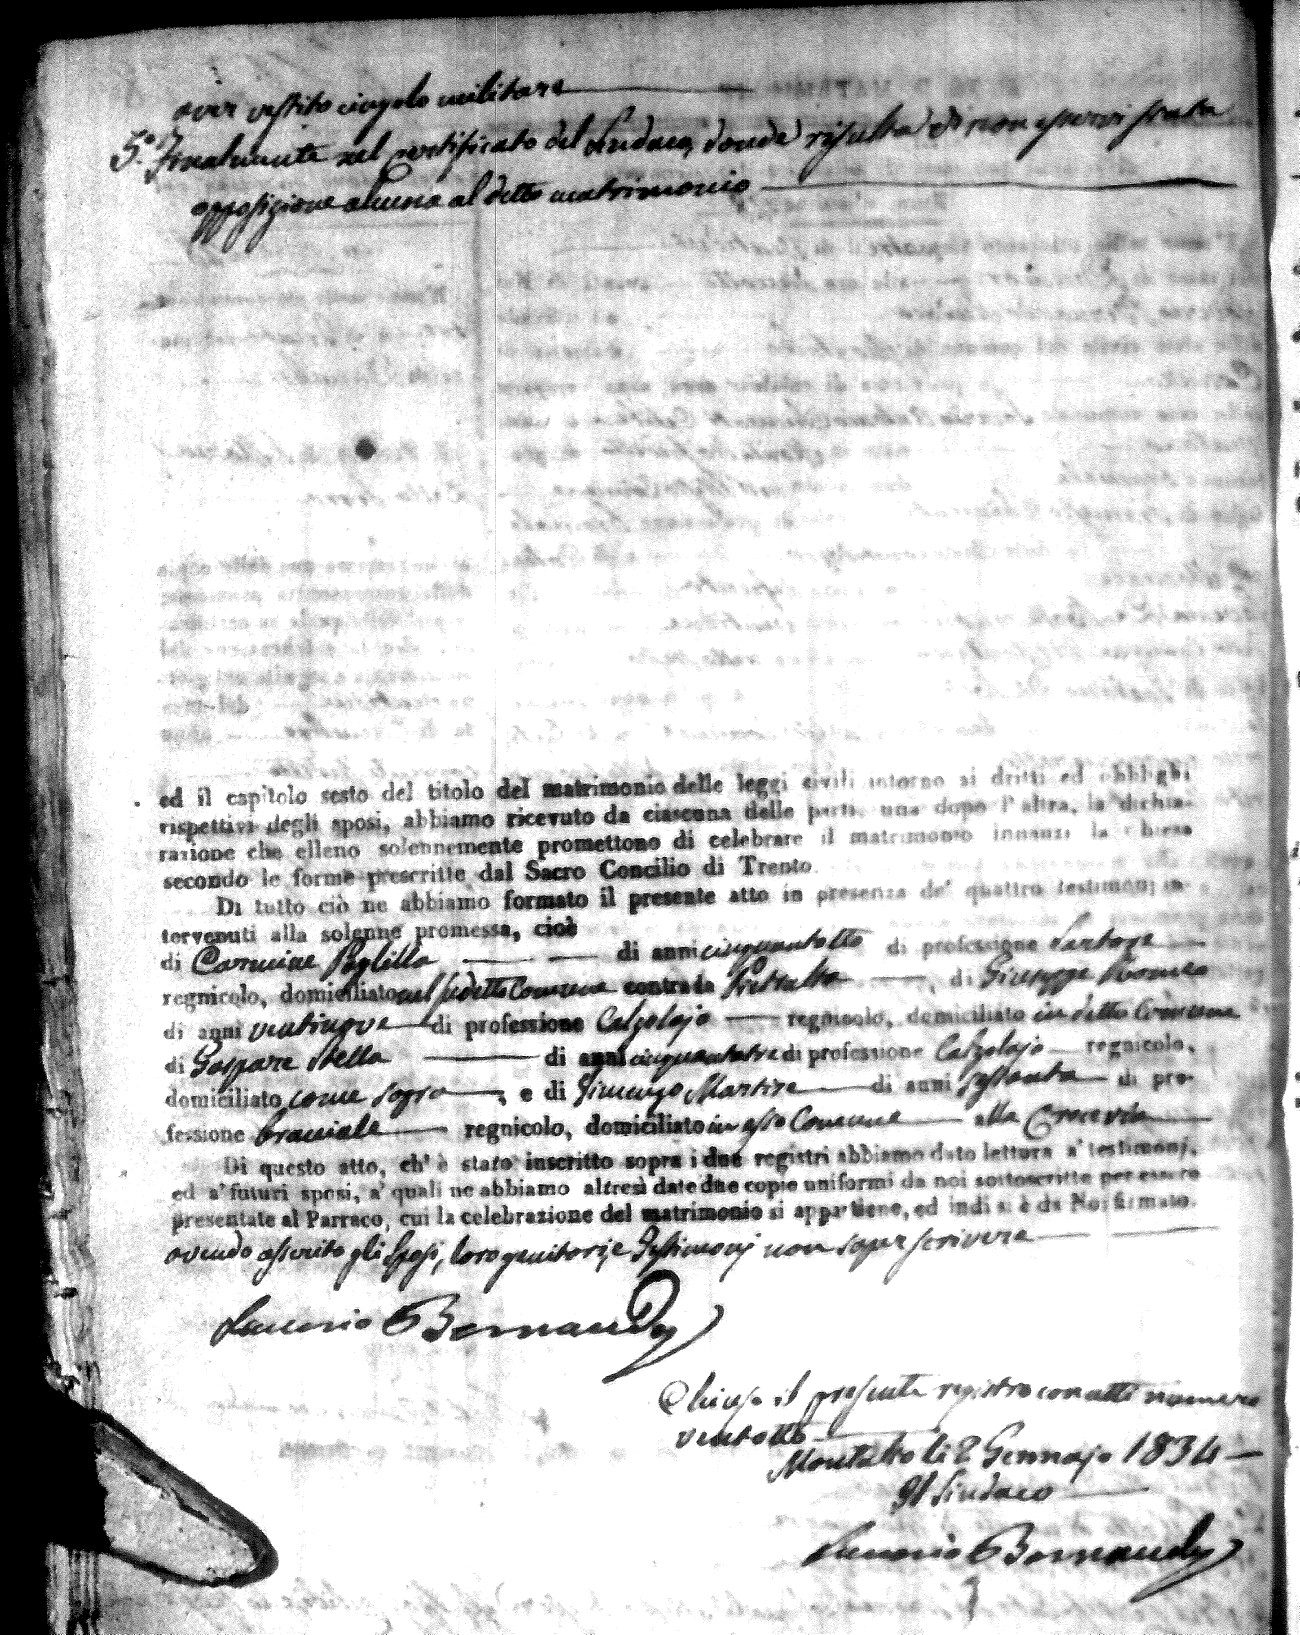 aver vestito cingolo militare
5.º Finalmente nel certificato del Sindaco, donde risulta di non esservi stata
opposizione alcuna al detto matrimonio
ed il capitolo sesto del titolo del matrimonio delle leggi civili intorno ai dritti ed obblighi
rispettivi degli sposi, abbiamo ricevuto da ciascuna delle parti, una dopo l'altra, la dichia-
razione che elleno solennemente promettono di celebrare il matrimonio innanzi la chiesa
secondo le forme prescritte dal Sacro Concilio di Trento.
Di tutto ciò ne abbiamo formato il presente atto in presenza de' quattro testimonj in-
tervenuti alla solenne promessa, cioè
di Carmine di anni cinquantotto di professione Sartore
regnicolo, domiciliato nel sudetto Comune contrada di Giuseppe Romeo
di anni ventinove di professione Calzolajo regnicolo, domiciliato in detto Comune
di Gaspare Stella di anni cinquantatre di professione Calzolajo regnicolo,
domiciliato come sopra , e di Martire di anni sessanta di pro-
fessione bracciale regnicolo, domiciliato in esso Comune alla Crocevia
Di questo atto, ch'è stato inscritto sopra i due registri abbiamo dato lettura a' testimonj,
ed a' futuri sposi, a' quali ne abbiamo altresì date due copie uniformi da noi sottoscritte per essere
presentate al Parroco, cui la celebrazione del matrimonio si appartiene, ed indi si è da Noi firmato.
avendo asserito gli Sposi, loro genitori, e Testimonj non saper scrivere
Bernaudo
Chiuso il presente registro con atti numero
ventotto
Montalto li 2 Gennajo 1834
Il Sindaco
Bernaudo